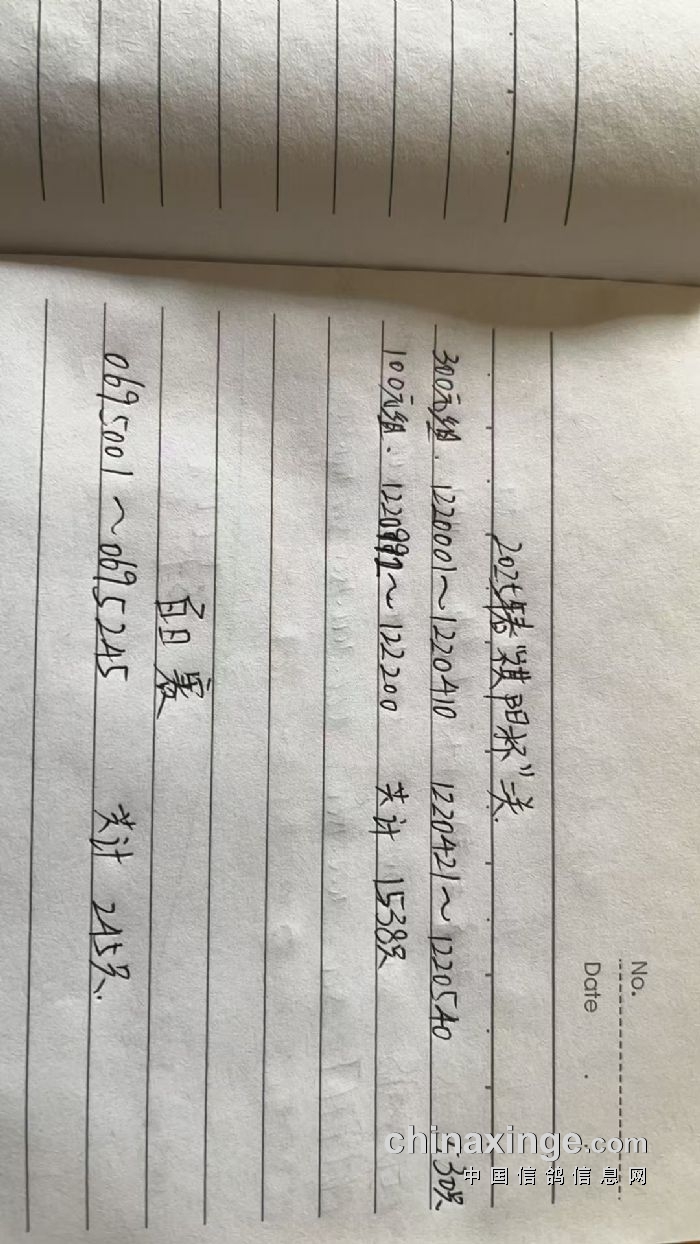 No.
Date
2025 "颍阳杯"
300元组. 1220001～1220410 1220421～1220540 30只
100元组. ～122200 共计 1538只
百日赛
0695001～0695245 共计 245只.
chinaxinge.com
中国信鸽信息网